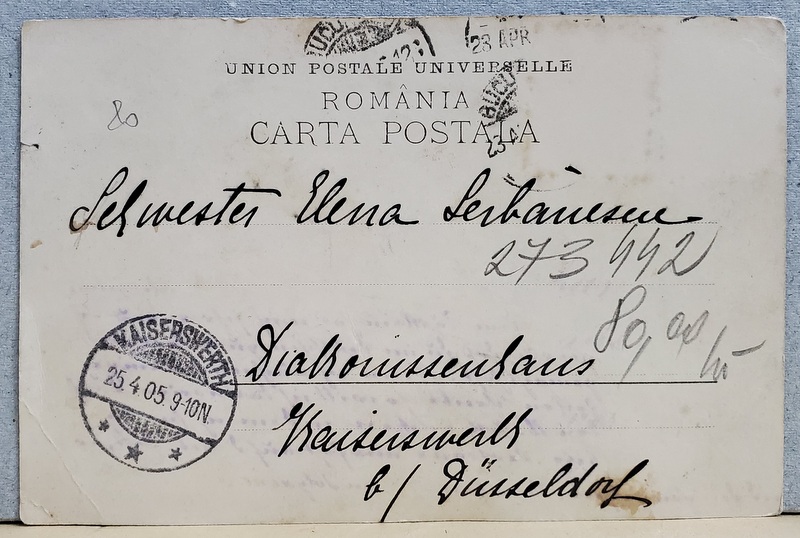 28 APR
UNION POSTALE UNIVERSELLE
ROMÂNIA
CARTA POSTALA
80
Schwester Elena Serbănescu
273 442
80,00
Diakonissenhaus
KAISERSWERTH
25.4.05. 9-10N.
Kaiserswerth
b/ Düsseldorf